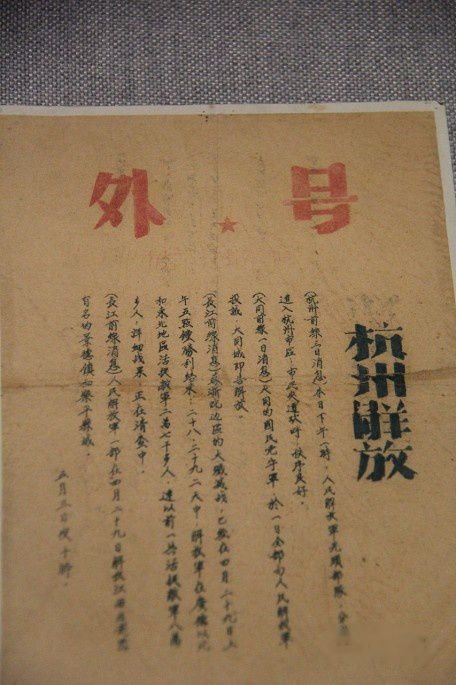 外号
杭州解放
(杭州前線三日消息)本日下午一時，人民解放軍先頭部隊，
進入杭州市區，市民夾道歡呼，秩序良好。
(大同前線一日消息)大同的國民党守軍，於一日全部向人民解放軍
投誠，大同城即告解放。
(長江前線消息)蘇浙皖邊區的大殲滅戰，已於在四月二十九日上
午五點鐘勝利結束，二十八、二十九二天中，解放軍在廣德以北
和未北地區活捉敵軍二萬七千多人，連以前一共活捉敵軍八萬
多人，詳細战果，正在清查中。
(長江前線消息)人民解放軍一部在四月二十九日解放江西
有名的景德鎮和樂平縣城。
五月三日